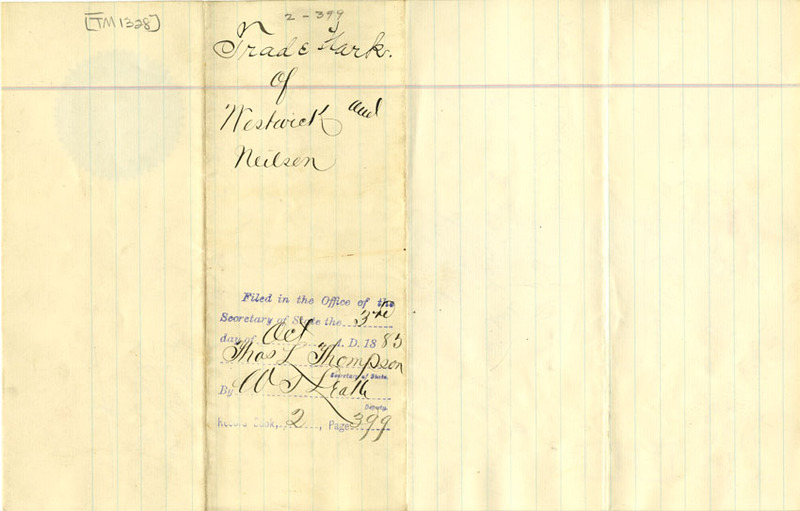 [TM1328]
2-399
Trade Mark.
of
Westwick and
Neilsen
Filed in the Office of the
Secretary of State the 3rd
day of Oct A. D. 1883
Thos L Thompson
Secretary of State.
By W T
Deputy.
Record Book, 2, Page 399